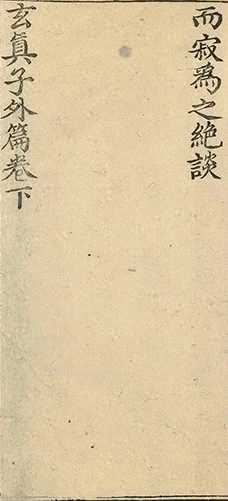 而寂爲之絶談
玄眞子外篇卷下